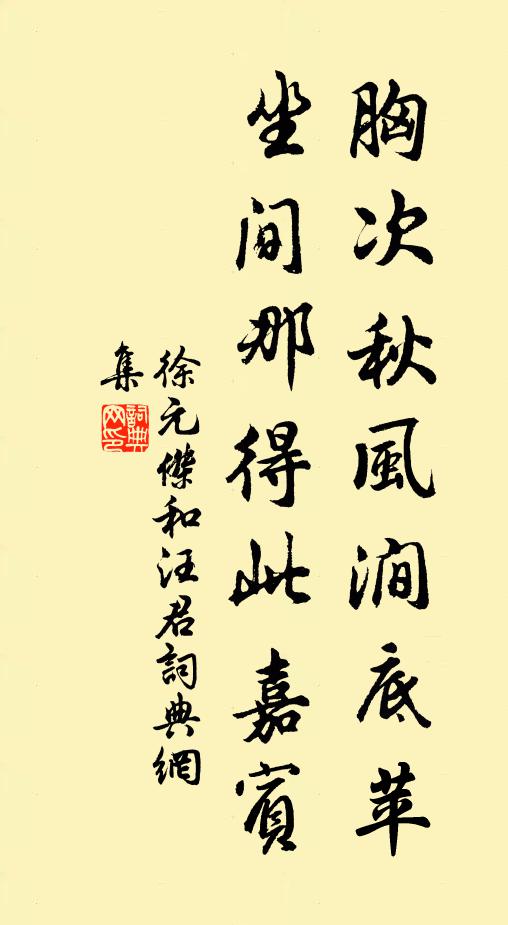 胸次秋風澗底苹
坐间那得此嘉賓
徐元傑和汪君詞典網
集
詞典網印